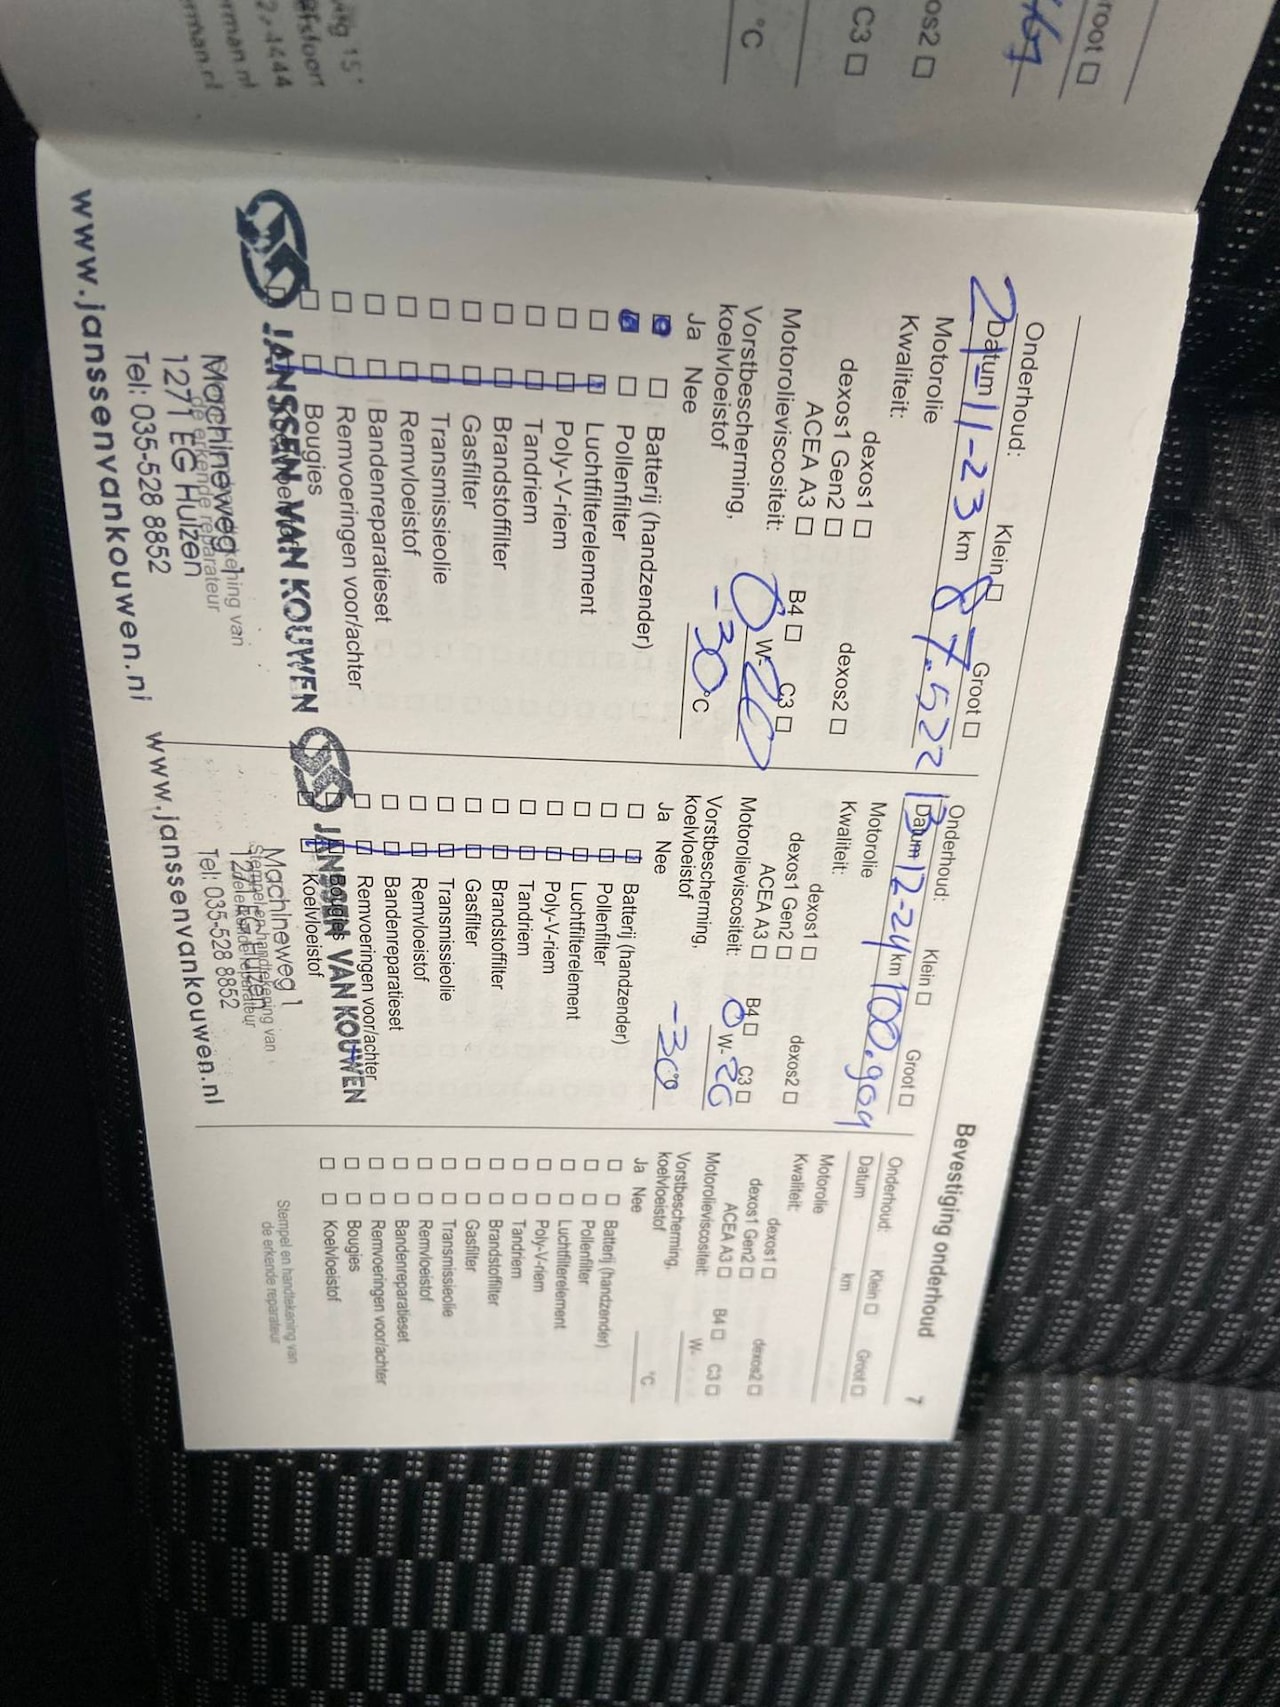 root
67
os2
C3
°C
Bevestiging onderhoud
7
Onderhoud:
Klein
Groot
21-11-23
Datum
km
87.522
Motorolie
Kwaliteit:
dexos1
dexos1 Gen2
dexos2
ACEA A3
B4
C3
Motorolieviscositeit:
0 W- 20
Vorstbescherming,
koelvloeistof
-30 °C
Ja Nee
Batterij (handzender)
Pollenfilter
Luchtfilterelement
Poly-V-riem
Tandriem
Brandstoffilter
Gasfilter
Transmissieolie
Remvloeistof
Bandenreparatieset
Remvoeringen voor/achter
Bougies
JANSSEN VAN KOUWEN
Machineweg 1
de erkende reparateur
1271 EG Huizen
Tel: 035-528 8852
www.janssenvankouwen.nl
Onderhoud:
Klein
Groot
13-12-24
Datum
km
100.909
Motorolie
Kwaliteit:
dexos1
dexos1 Gen2
dexos2
ACEA A3
B4
C3
Motorolieviscositeit:
0 W- 20
Vorstbescherming,
koelvloeistof
-30
Ja Nee
Batterij (handzender)
Pollenfilter
Luchtfilterelement
Poly-V-riem
Tandriem
Brandstoffilter
Gasfilter
Transmissieolie
Remvloeistof
Bandenreparatieset
Remvoeringen voor/achter
Bougies
Koelvloeistof
JANSSEN VAN KOUWEN
Machineweg 1
Stempel en handtekening van
Huizen
Tel: 035-528 8852
www.janssenvankouwen.nl
Onderhoud:
Klein
Groot
Datum
km
Motorolie
Kwaliteit:
dexos1
dexos1 Gen2
dexos2
ACEA A3
B4
C3
Motorolieviscositeit:
W-
Vorstbescherming,
koelvloeistof
°C
Ja Nee
Batterij (handzender)
Pollenfilter
Luchtfilterelement
Poly-V-riem
Tandriem
Brandstoffilter
Gasfilter
Transmissieolie
Remvloeistof
Bandenreparatieset
Remvoeringen voor/achter
Bougies
Koelvloeistof
Stempel en handtekening van
de erkende reparateur